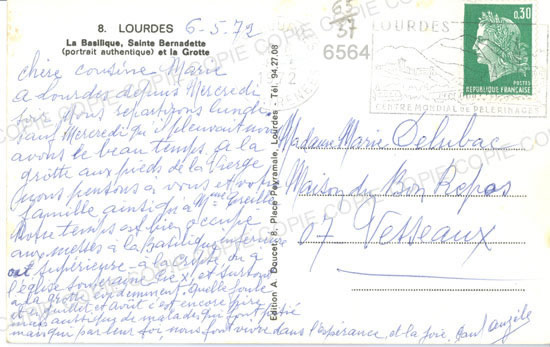 8. LOURDES
6-5-72
La Basilique, Sainte Bernadette
(portrait authentique) et la Grotte
63
37
6564
LOURDES
0,30
POSTES
REPUBLIQUE FRANÇAISE
CENTRE MONDIAL DE PELERINAGES
chère cousine Marie
a Lourdes depuis Mercredi
soir nous repartirons lundi
sauf Mercredi qu'il pleuvait nous
avons le beau temps, a la
grotte aux pieds de la Vierge
nous pensons a vous et votre
famille ainsi qu'a Mme
Notre temps est bien occupé
aux messes a la basilique inférieure
et supérieure, a la crypte, ou a
l'église souterraine Pie X et surtout
a la grotte évidemment. quelle foule
et juillet et août c'est encore pire
mais autre que de malades qui font pitié
mais qui par leur foi, nous font vivre dans l'espérance, et la joie. Paul
Edition A. Doucet, 8, Place Peyramale, Lourdes - Tél. 94.27.08
Madame Marie Delubac
Maison du Bon Repos
07 Vesseaux
COPIE COPIE COPIE COPIE COPIE